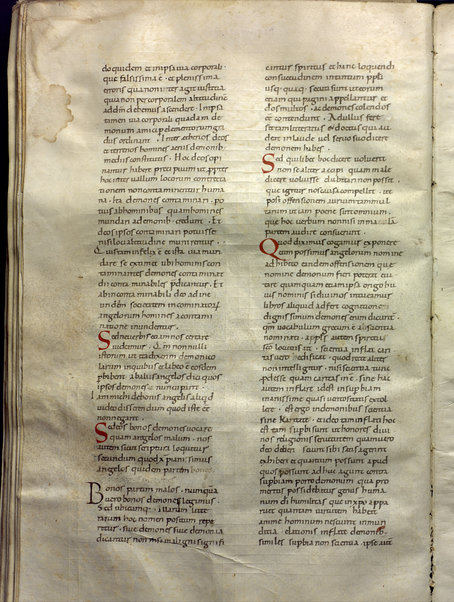 do quidem et in ipsa via corporali
que falsissima e. et plenissima
erroris qua non iter agit iustitia
qua non per corporalem altitudine
ad dim debemus ascendere. In ipsa
tamen via corporali quadam de
monum amici p elementorum gra
dus ordinant. Inter etherios deos
et terrenos homines aerios demonib
medius constitutis. Hoc deos opi
nantur habere precipuum ut appter
hoc inter vallum locorum contrecta
tionem non contaminentur huma
na. Ita demones contaminari po
tius ab hominibus quam homines
mundari a demonib credunt. Et
deos ipsos contaminari potuisse
nisi loci altitudine munirentur.
Quis tam infelix e ut ista via mun
dare se existimet ubi homines con
taminantes demones contaminati
dii contaminabiles predicantur. Et
ab in contaminabili deo ad in
undandam societatem in contaminatorum
angelorum homines a contami
natione inundentur.
Sed ne verbis etiam nos certare
videamur. Qm nonnulli
istorum ut ita dixerim demonico
larum in quibus e labeo e eosdem
phibent ab aliis angelos dici quos
ipsi demones nuncupant.
Iam michi de bonis angelis aliqd
video disserendum quos iste ee
non negant.
Sed eos bonos demones vocare
quam angelos malunt. nos
autem sicut scriptura loquitur
secundum qua xpiani simus
angelos quidem partim bonos
Bonos partim malos. nunqua
vero bonos demones legimus.
Sed ubicumq illarum litte
rarum hoc nomen positum repe
ritur. sive demones sive demonia
dicantur non nisi maligni signifi
cantur spiritus et hanc loquendi
consuetudinem in tantum ppli
usq quaq secuti sunt ut eorum
etiam qui pagani appellantur et
deos multos. ac demones colendos
ee contendunt. Nullus fere
sit tam litteratus et doctus qui au
deat in laude vel servo suo dicere
demonem habes.
Sed cui libet hoc dicere voluerit
non se aliter accipi quam male
dicere voluisse dubitare non possit.
que igitur nos causa compellit. ut
post offensionem aurium tam mul
tarum ut iam poene sit omnium
que hoc verbum non nisi in mala
partem audire consuerunt.
Quod diximus cogamur exponere
cum possimus angelorum nomine
adhibito eandem offensionem que
nomine demonum fieri poterat evi
tare quamquam etiam ipsa origo hu
ius nominis si divinos intueamur
libros aliquid adfert cognitione
dignissimum demones enim dicuntur.
qm vocabulum grecum e ab scientia
nominati. apls autem spiritu
sco locutus ait. scientia inflat cari
tas vero edificat. quod recte aliter
non intelligitur. nisi scientia tunc
pdesse quam caritas inest. sine hac
autem inflare id est in supbiam
inanissime quasi ventositatis extol
lere. est ergo in demonibus scientia
sine karitate. et ideo tam inflati hoc
est tam supbi sunt ut honores divi
nos religionis servitutem quam vero
deo deberi sciunt sibi satis agerint
exhiberi et quantum possunt apud
quos possunt adhuc agunt contra
supbiam porro demonum qua pro
meritis possidebatur genus huma
num di humilitas que in xpo appa
ruit quantam virtutem habeat
anime hominum nesciunt inmun
ditia elationis inflate demonib
similes supbia non scientia. ipsi aut